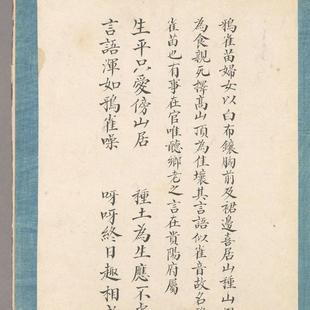 鴉雀苗婦女以白布鑲胸前及裙邊喜居山種山
為食親死擇髙山頂為佳壤其言語似雀音故名
雀苗也有事在官唯聽鄉老之言在貴陽府屬
生平只愛傍山居　種土為生應不
言語渾如鴉雀噪　呀呀終日趣相